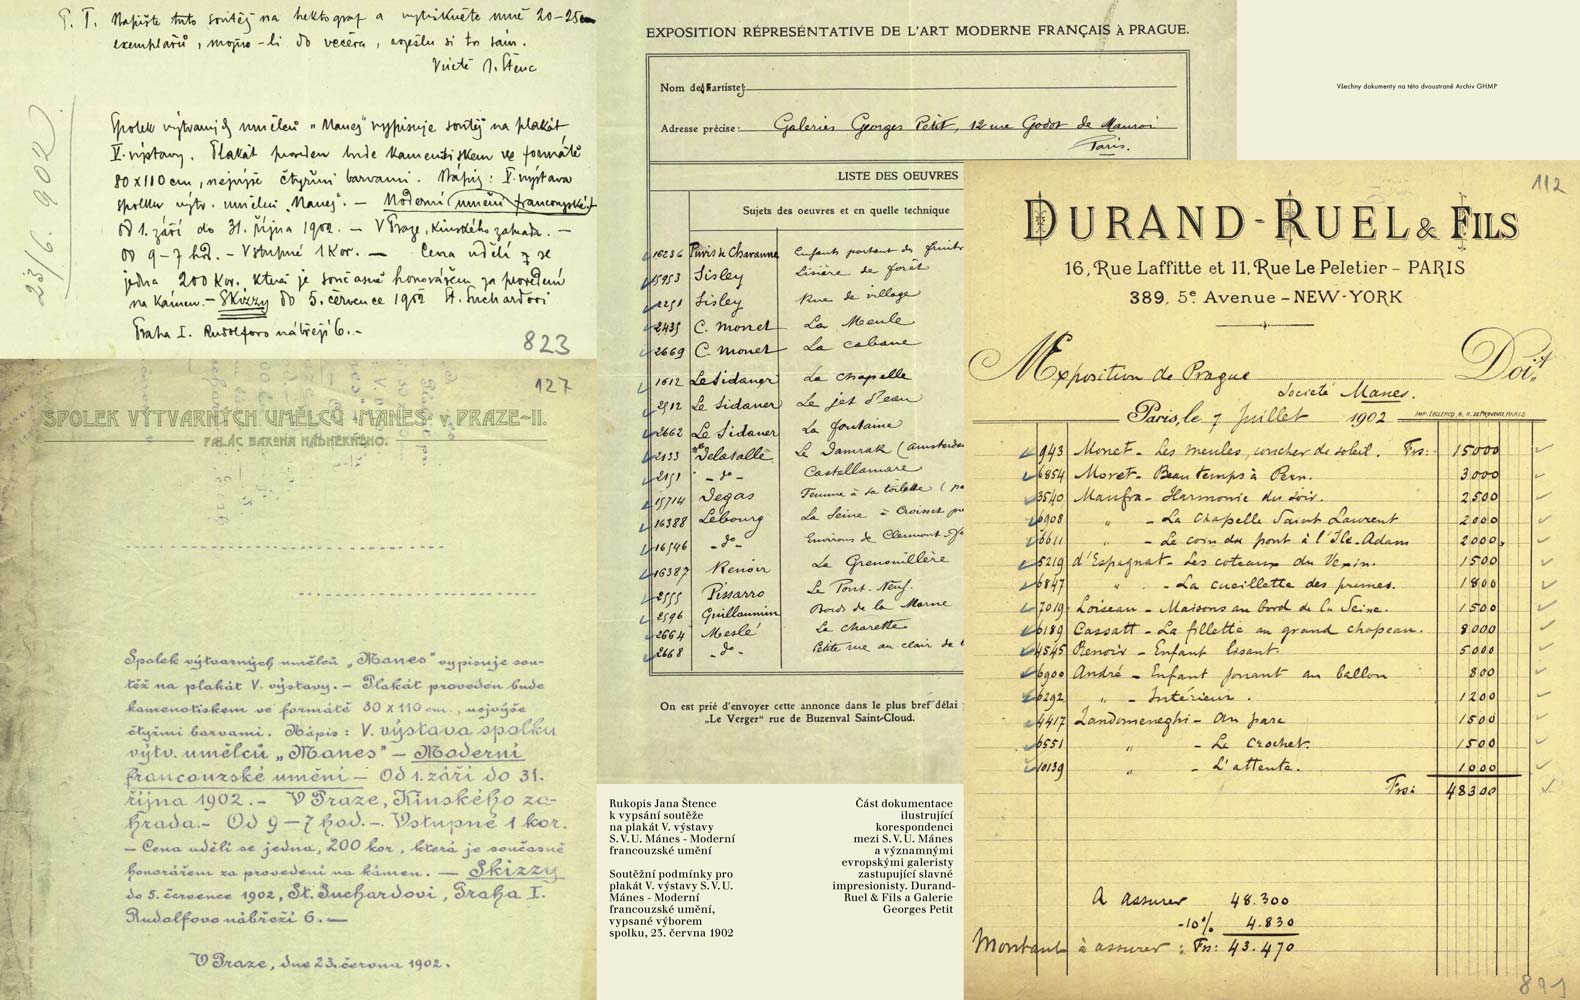 P. T. Napište tuto soutěž na hektograf a vytiskněte mně 20-25
exemplářů, možno-li do večera, sám.
J. Štenc
23/6. 902
Spolek výtvarných umělců „Manes" vypisuje soutěž na plakát
V. výstavy. Plakát proveden bude kamenotiskem ve formátě
80 x 110 cm, nejvýše čtyřmi barvami. Nápis: V. výstava
spolku výtv. umělců „Manes". — Moderní umění francouzské
Od 1. září do 31. října 1902. — V Praze, Kinského zahrada. —
Od 9-7 hod. — Vstupné 1 Kor. — Cena udělí se
jedna 200 Kor., která je současně honorářem za provedení
na kámen. — Skizzy do 5. července 1902 St. Suchardovi
Praha I. Rudolfovo nábřeží 6. -
823
127
SPOLEK VÝTVARNÝCH UMĚLCŮ „MANES" V PRAZE-II.
PALÁC BARONA NÁDHERNÉHO.
Spolek výtvarných umělců „Manes" vypisuje sou-
těž na plakát V. výstavy. — Plakát proveden bude
kamenotiskem ve formátě 80 x 110 cm., nejvýše
čtyřmi barvami. Nápis: V. výstava spolku
výtv. umělců „Manes" — Moderní
francouzské umění — Od 1. září do 31.
října 1902. — V Praze, Kinského za-
hrada. — Od 9-7 hod. —. Vstupné 1 kor.
— Cena udělí se jedna, 200 kor, která je současně
honorářem za provedení na kámen. — Skizzy
do 5. července 1902, St. Suchardovi, Praha I.
Rudolfovo nábřeží 6. —
V Praze, dne 23. června 1902.
EXPOSITION RÉPRESÉNTATIVE DE L'ART MODERNE FRANÇAIS à PRAGUE.
Nom de l'artiste:
Adresse précise: Galeries Georges Petit, 12 rue Godot de Mauroi
Paris.
LISTE DES OEUVRES
Sujets des oeuvres et en quelle technique
16236 Puvis de Chavannes Enfants portant des fruits
15953 Sisley Lisière de forêt
2251 Sisley Rue de village
2435 C. Monet La Meule
2669 C. Monet La cabane
1612 Le Sidaner La chapelle
2512 Le Sidaner Le jet d'eau
2662 Le Sidaner La fontaine
2133 Delasalle Le Damrak (Amsterdam
2151 - do - Castellamare
15714 Degas Femme à sa toilette
16388 Lebourg La Seine à Croisset
16546 - do - Environs de Clermont
16387 Renoir La Grenouillère
2555 Pissarro Le Pont-Neuf.
2596 Guillaumin Bords de la Marne
2664 Meslé La charette
2668 - do - Petite rue au clair de
On est prié d'envoyer cette annonce dans le plus bref délai
„Le Verger" rue de Buzenval Saint-Cloud.
Rukopis Jana Štence
k vypsání soutěže
na plakát V. výstavy
S.V.U. Mánes - Moderní
francouzské umění
Soutěžní podmínky pro
plakát V. výstavy S.V.U.
Mánes - Moderní
francouzské umění,
vypsané výborem
spolku, 23. června 1902
Část dokumentace
ilustrující
korespondenci
mezi S.V.U. Mánes
a významnými
evropskými galeristy
zastupující slavné
impresionisty. Durand-
Ruel & Fils a Galerie
Georges Petit
Všechny dokumenty na této dvoustraně Archiv GHMP
112
DURAND-RUEL & FILS
16, Rue Laffitte et 11, Rue Le Peletier - PARIS
389, 5e Avenue - NEW-YORK
Exposition de Prague Doit
Societé Manes.
Paris, le 7 Juillet 1902
943 Monet - Les meules, coucher de soleil. Frs: 15000
6854 Moret - Beau temps à Pern. 3000
3540 Maufra - Harmonie du soir. 2500
6908 " - La Chapelle Saint Laurent 2000
6611 " - Le coin du pont à l'Ile-Adam 2000
5219 d'Espagnat - Les coteaux du Vexin. 1500
6847 " - La cueillette des prunes. 1800
7019 Loiseau - Maisons au bord de la Seine. 1500
6189 Cassatt - La fillette au grand chapeau. 8000
4545 Renoir - Enfant lisant. 5000
6900 André - Enfant jouant au ballon 800
6292 " - Intérieur. 1200
4417 Zandomeneghi - Au parc 1500
6551 " - Le crochet. 1500
10139 " - L'attente. 1000
Frs: 48300
A assurer 48.300
-10% 4.830
Montant à assurer: Frs: 43.470
891